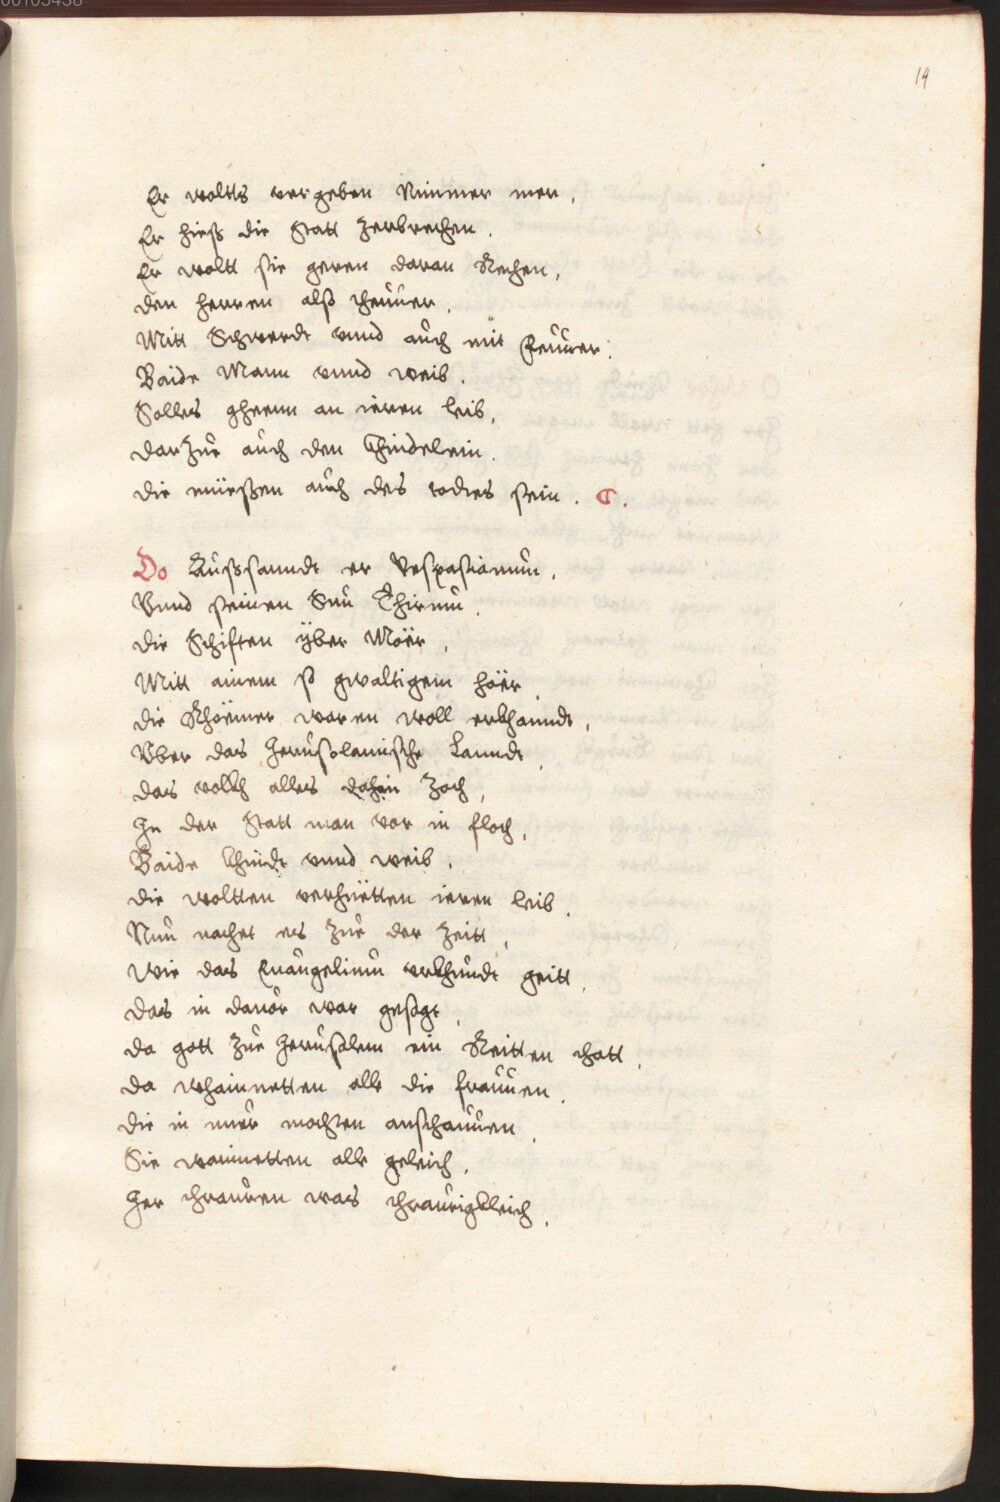 14
Er wolts vergeben Nimmer mer,
Er hieß die Statt Zerbrechen.
Er wolt sie geren daran Rechen,
den herren alß theuuer.
Mitt Schwerdt vnnd auch mit Feuuer.
Baide Mann vnnd weib.
Solles gheenn an ieren leib,
darzue auch den Chindelein.
die müeßen auch des todtes sein. C.
Do Außsanndt er Vespasianum,
Vnnd seinen Sun Thitum
die Schifften yber Möer,
Mitt ainem so gwaltigem höer
die Rhöemer waren woll erkhanndt,
Vber das Jerusolamische Lanndt
das volckh alles dahin Zoch,
In der Statt man vor in floch,
Baide khindt vnnd weib.
die woltten verhüetten ieren leib.
Nun nachet es Zue der Zeitt,
Wie das Euangelium vrkhundt geitt,
das in dauor war gesagt,
da gott Zue Jerusalem ein Reitten thatt,
da whainnetten alle die frauuen.
die in nuer mochten anschauuen,
Sie wainnetten alle geleich,
Ier thrauren was thraurigkleich,